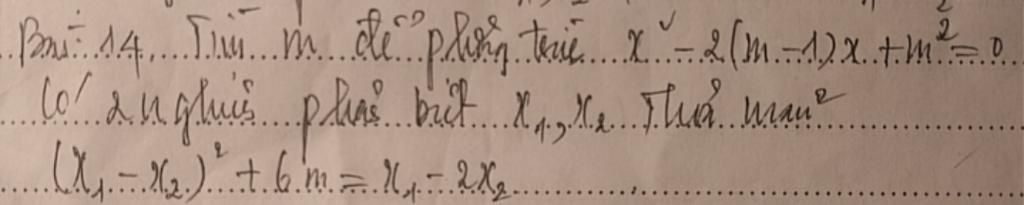 Bài 14. Tìm m để phương trình x² - 2(m-1)x + m² = 0
Có 2 nghiệm phân biệt x₁, x₂ Thoả mãn
(x₁ - x₂)² + 6m = x₁ - 2x₂